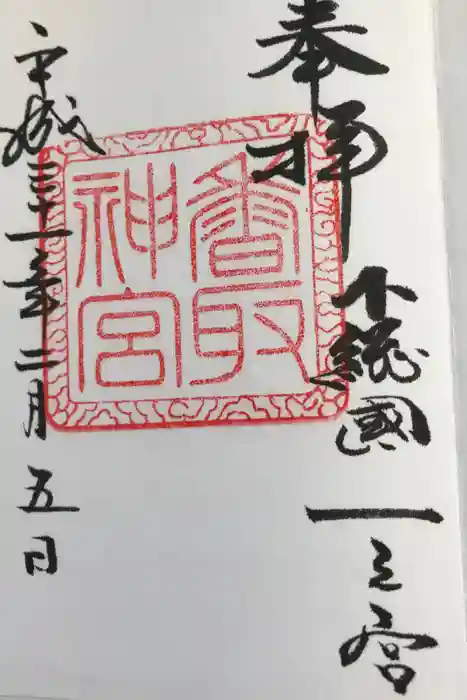 奉拝
下総國一之宮
香取
神宮
平成三十一年二月五日